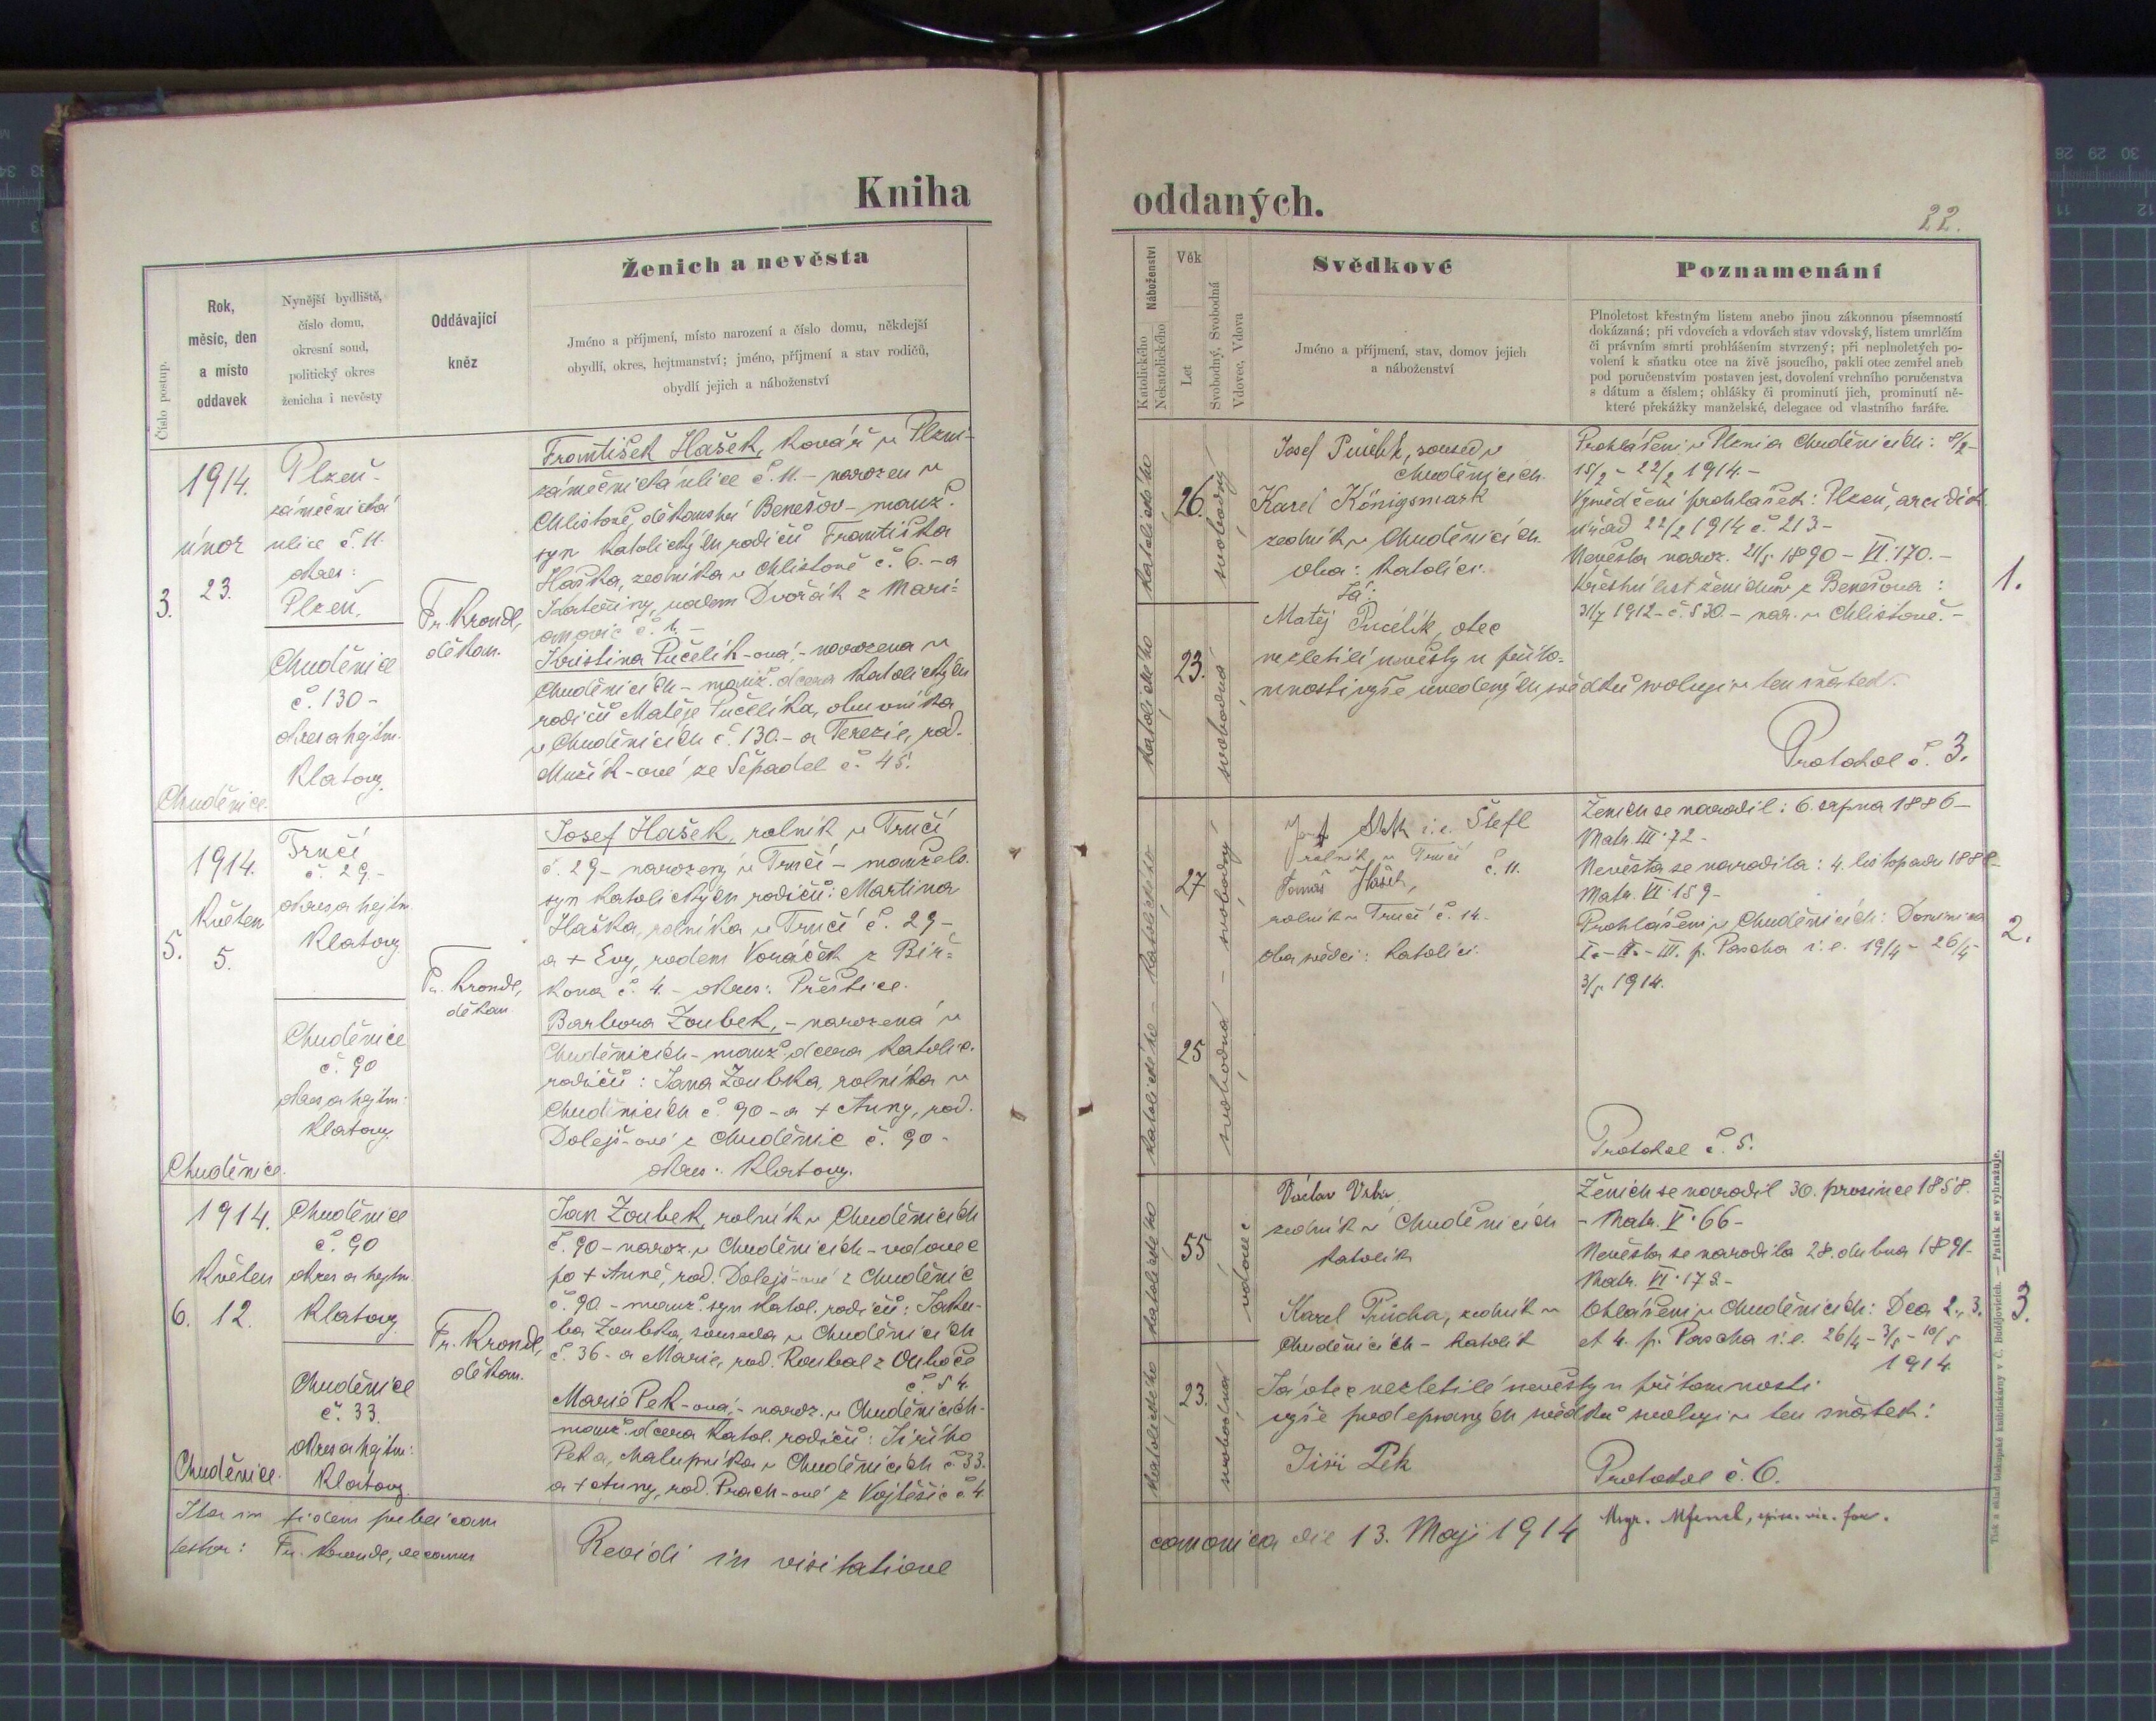 Kniha
oddaných.
22.
Číslo postup.
Rok,
měsíc, den
a místo
oddavek
Nynější bydliště,
číslo domu,
okresní soud,
politický okres
ženicha i nevěsty
Oddávající
kněz
Ženich a nevěsta
Jméno a příjmení, místo narození a číslo domu, někdejší
obydlí, okres, hejtmanství; jméno, příjmení a stav rodičů,
obydlí jejich a náboženství
Náboženství
Katolického
Nekatolického
Věk
Let
Svobodný, Svobodná
Vdovec, Vdova
Svědkové
Jméno a příjmení, stav, domov jejich
a náboženství
Poznamenání
Plnoletost křestným listem anebo jinou zákonnou písemností
dokázaná; při vdovcích a vdovách stav vdovský, listem umrlčím
či právním smrti prohlášením stvrzený; při neplnoletých po-
volení k sňatku otce na živě jsoucího, pakli otec zemřel aneb
pod poručenstvím postaven jest, dovolení vrchního poručenstva
s dátum a číslem; ohlášky či prominutí jich, prominutí ně-
které překážky manželské, delegace od vlastního faráře.
3.
1914.
únor
23.
Chuděnice.
Plzeň-
zámečnická
ulice č. 11.
okres:
Plzeň.
Chuděnice
č. 130-
okres a hejtm.
Klatovy.
Fr. Krondl,
děkan.
František Hašek, kovář v Plzni-
zámečnická ulice č. 11. - narozen v
Chlistově, děkanství Benešov - manž.
syn katolických rodičů Františka
Haška, zedníka v Chlistově č. 6. - a
Kateřiny, rodem Dvořák z Mari-
anovic č. 1. -
Kristina Pučelík-ová, - narozena v
Chuděnicích - manž. dcera katolických
rodičů Matěje Pučelíka, obuvníka
v Chuděnicích č. 130. - a Terezie, rod.
Mužík-ové ze Sepadel č. 45.
katolického
26.
svobodný
katolického
23.
svobodná
Josef soused v
Chuděnicích.
Karel Königsmark
zedník v Chuděnicích.
oba: katolíci.
Já:
Matěj Pučelík, otec
nezletilé nevěsty u příto-
mnosti výše uvedených svědků svoluji v ten sňatek.
Prohlášeni v Plzni a Chuděnicích: 8/2-
15/2 - 22/2 1914 -
Vysvědčení prohlášek: Plzeň, arciděk.
úřad 22/2 1914 č. 213 -
Nevěsta naroz. 21/5 1890 - VI. 170. -
Křestní list ženichův z Benešova:
31/7 1912 - č. 530. - nar. v Chlistově. -
Protokol č. 3.
1.
5.
1914.
Květen
5.
Chuděnice.
Trnčí
č. 29-
okres a hejtm.
Klatovy.
Chuděnice
č. 90
okres a hejtm:
Klatovy.
Fr. Krondl,
děkan
Josef Hašek, rolník v Trnčí
č. 29 - narozený v Trnčí - manžels.
syn katolických rodičů: Martina
Haška, rolníka v Trnčí č. 29 -
a + Evy, rodem Voráček z Bir-
kova č. 4. - okres: Přeštice.
Barbora Zoubek, - narozená v
Chuděnicích - manž. dcera katolic.
rodičů: Jana Zoubka, rolníka v
Chuděnicích č. 90 - a + Anny, rod.
Dolejš-ové z Chuděnic č. 90 -
okres: Klatovy.
katolického - katolického
27
25
svobodná - svobodný
i. e. Štefl
rolník v Trnčí č. 11.
Tomáš Hašek,
rolník v Trnčí č. 14.
oba svědci: katolíci.
Ženich se narodil: 6. srpna 1886 -
Matr. III. 72 -
Nevěsta se narodila: 4. listopadu 1888-
Matr. VI. 159 -
Prohlášeni v Chuděnicích: Dominica
I. - II. - III. p. Pascha i. e. 19/4 - 26/4
3/5 1914.
Protokol č. 5.
2.
6.
1914.
Květen
12.
Chuděnice.
Chuděnice
č. 90
okres a hejtm.
Klatovy.
Chuděnice
č. 33.
okres a hejtm:
Klatovy.
Fr. Krondl,
děkan.
Jan Zoubek, rolník v Chuděnicích
č. 90 - naroz. v Chuděnicích - vdovec
po + Anně, rod. Dolejš-ové z Chuděnic
č. 90 - manž. syn katol. rodičů: Jaku-
ba Zoubka, souseda v Chuděnicích
č. 36 - a Marie, rod. Roubal z Ouboče
č. 54.
Marie Pek-ova, - naroz. v Chuděnicích-
manž. dcera katol. rodičů: Jiřího
Peka, chalupníka v Chuděnicích č. 33.
a + Anny, rod. Prach-ové z Vojtěšic č. 4
katolického
55
vdovec
katolického
23.
svobodná
Václav Vrba
zedník v Chuděnicích
katolík
Karel Průcha, zedník v
Chuděnicích - katolík
Já otec nezletilé nevěsty u přítomnosti
výše podepsaných svědků svoluji v ten sňatek:
Jiří Pek
Ženich se narodil 30. prosince 1858.
- Matr. V. 66 -
Nevěsta se narodila 28. dubna 1891-
Matr. VI. 178 -
Ohlášeni v Chuděnicích: Dca 2., 3.
et 4. p. Pascha i. e. 26/4 - 3/5 - 10/5
1914
Protokol č. 6.
3.
Ita in fidem publicam
testor: Fr. Krondl, decanus
Revidi in visitatione
canonica die 13. Maji 1914
Msgr. vic. for.
Tisk a sklad biskupské knihtiskárny v Č. Budějovicích. — Patisk se vyhražuje.